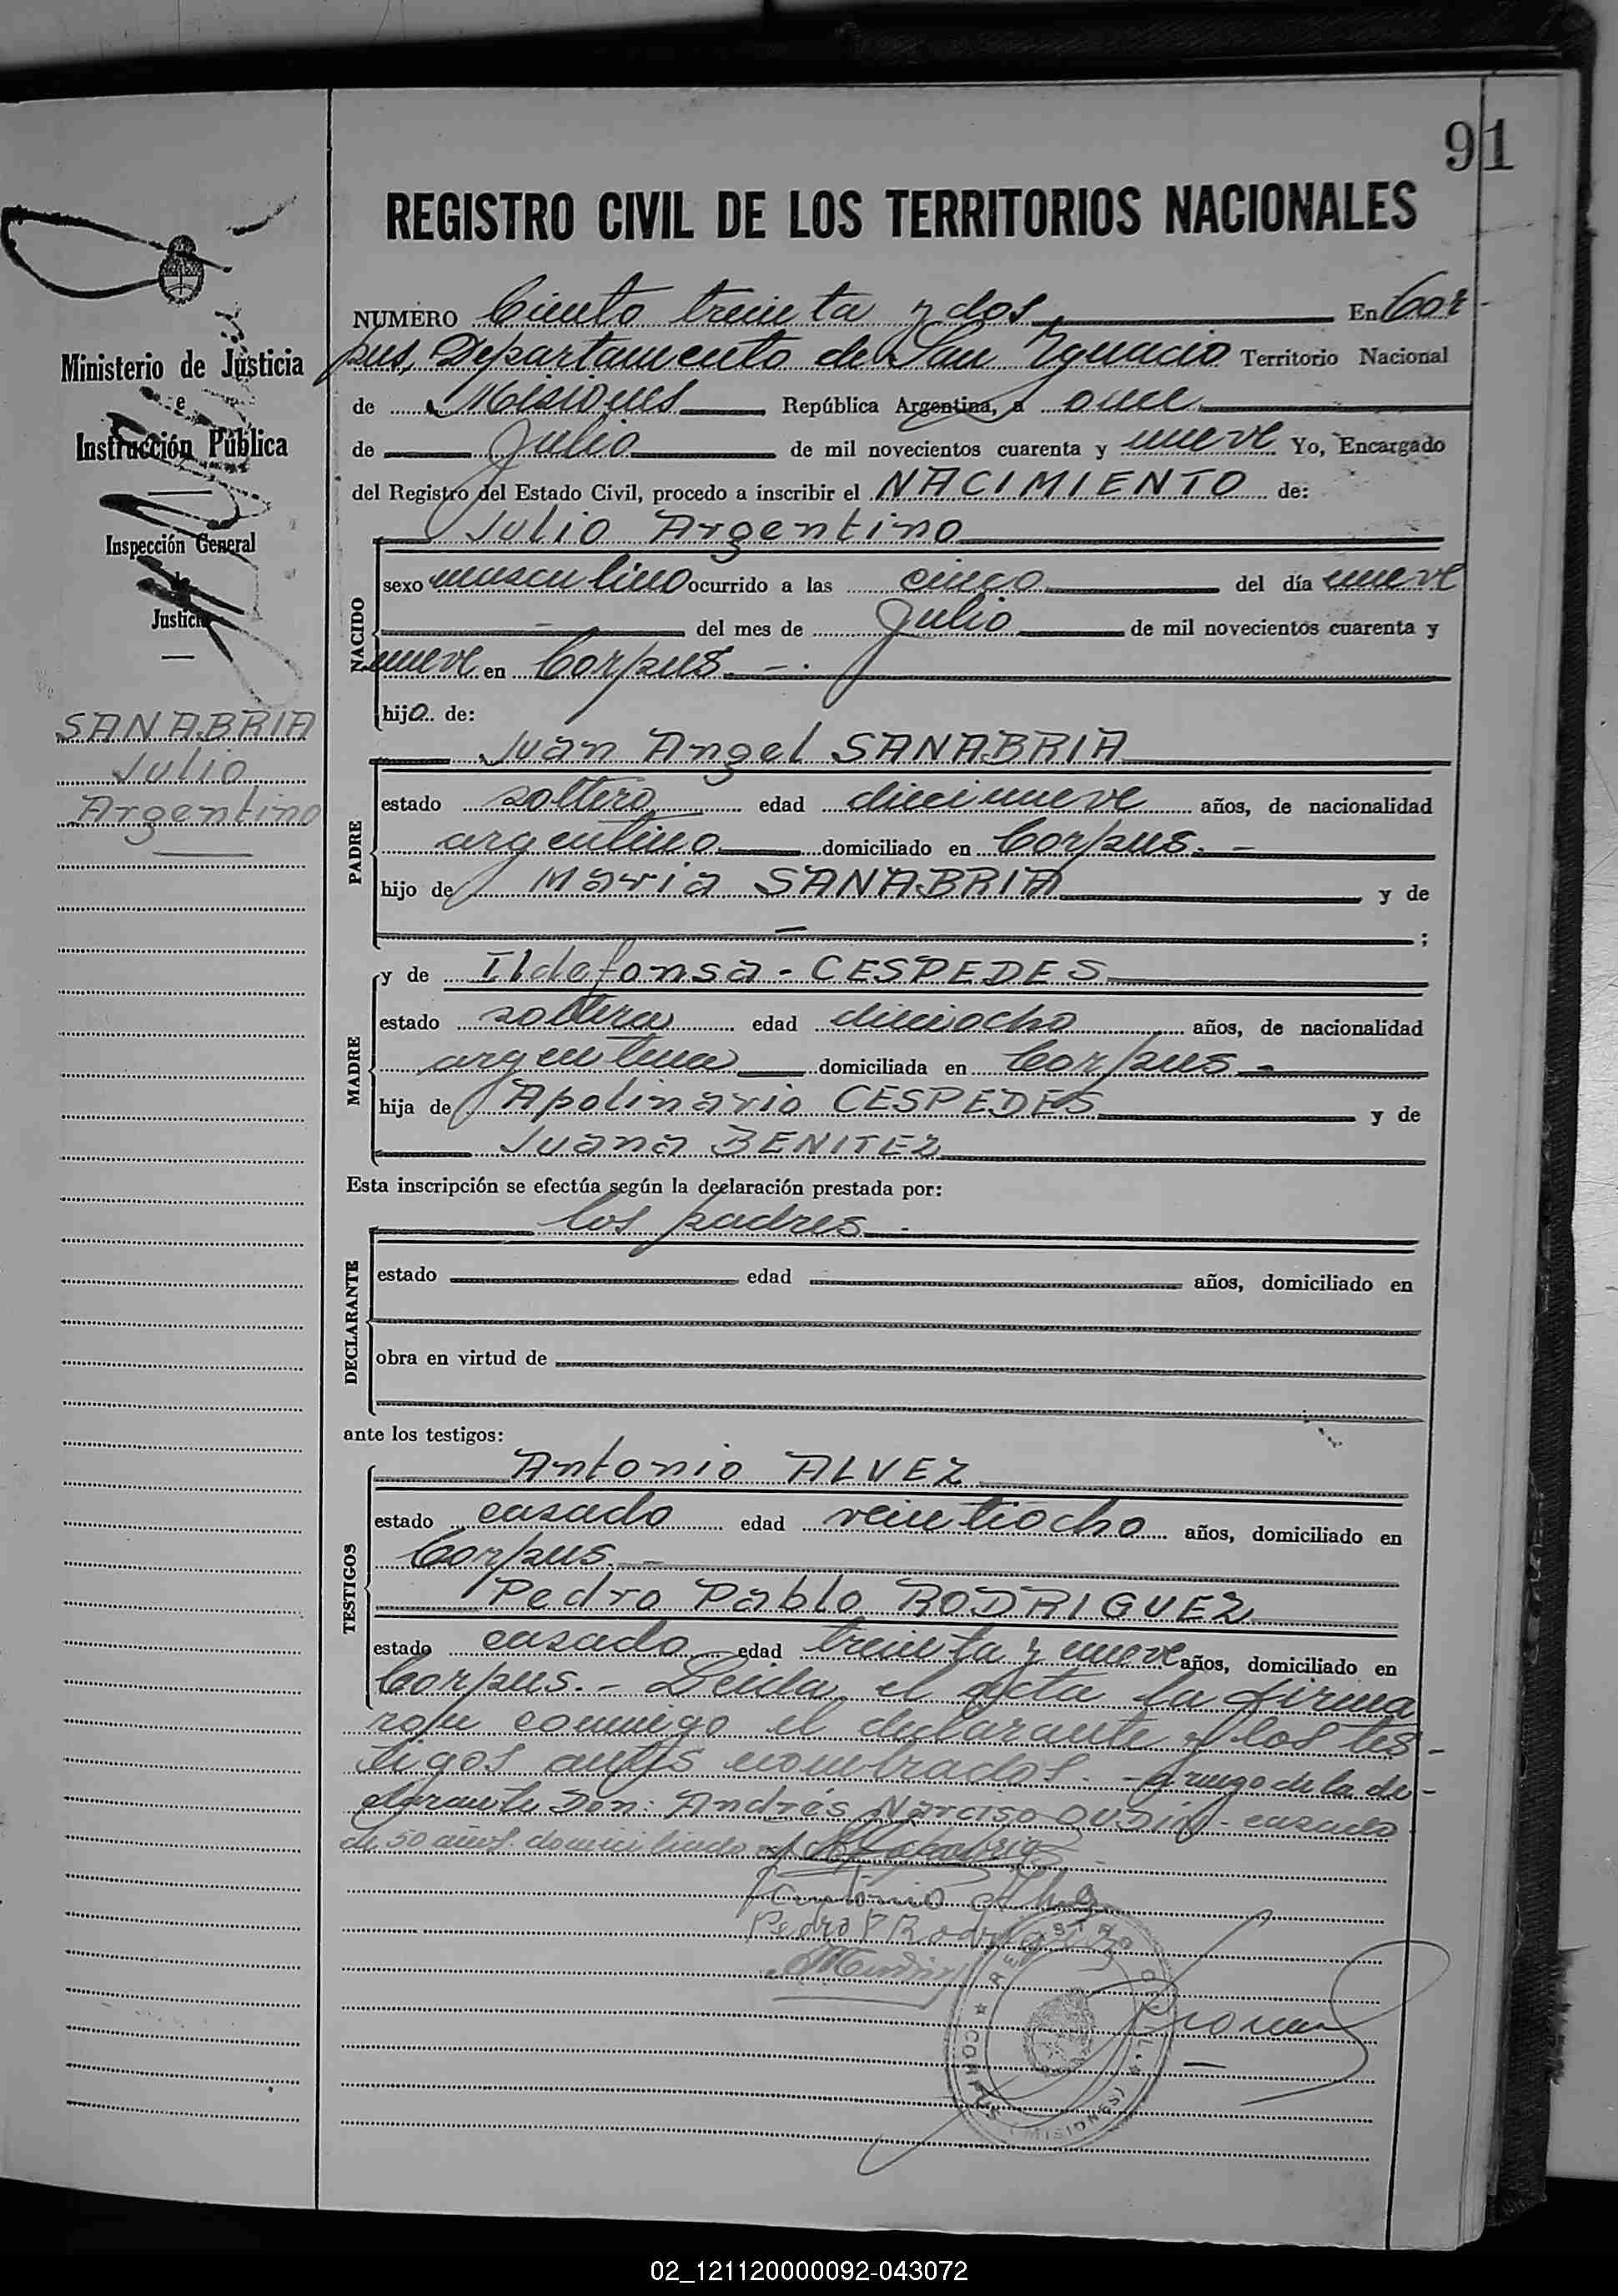 91
REGISTRO CIVIL DE LOS TERRITORIOS NACIONALES
Ministerio de Justicia
e
Instrucción Pública
Inspección General
de
Justicia
SANABRIA
Julio
Argentino
NUMERO Ciento treinta y dos En Cor-
pus, Departamento de San Ygnacio Territorio Nacional
de Misiones República Argentina, a once
de Julio de mil novecientos cuarenta y nueve Yo, Encargado
del Registro del Estado Civil, procedo a inscribir el NACIMIENTO de:
Julio Argentino
NACIDO
sexo masculino ocurrido a las cinco del día nueve
del mes de Julio de mil novecientos cuarenta y
nueve en Corpus.-
hijo de:
Juan Angel SANABRIA
PADRE
estado soltero edad diecinueve años, de nacionalidad
argentino domiciliado en Corpus.-
hijo de Maria SANABRIA y de
- ;
MADRE
y de Ildefonsa - CESPEDES
estado soltera edad dieciocho años, de nacionalidad
argentina domiciliada en Corpus -
hija de Apolinario CESPEDES y de
Juana BENITEZ
Esta inscripción se efectúa según la declaración prestada por:
los padres.
DECLARANTE
estado edad años, domiciliado en
obra en virtud de
ante los testigos:
TESTIGOS
Antonio ALVEZ
estado casado edad veintiocho años, domiciliado en
Corpus.-
Pedro Pablo RODRIGUEZ
estado casado edad treinta y nueve años, domiciliado en
Corpus.- Leida el acta la firma
ron conmigo el declarante y los tes-
tigos antes nombrados.- a ruego de la de-
clarante Don: Andrés Narciso - casado
de 50 años domiciliado
Antonio Alvez
Pedro P Rodriguez
REGISTRO CIVIL
CORPUS (MISIONES)
02_121120000092-043072